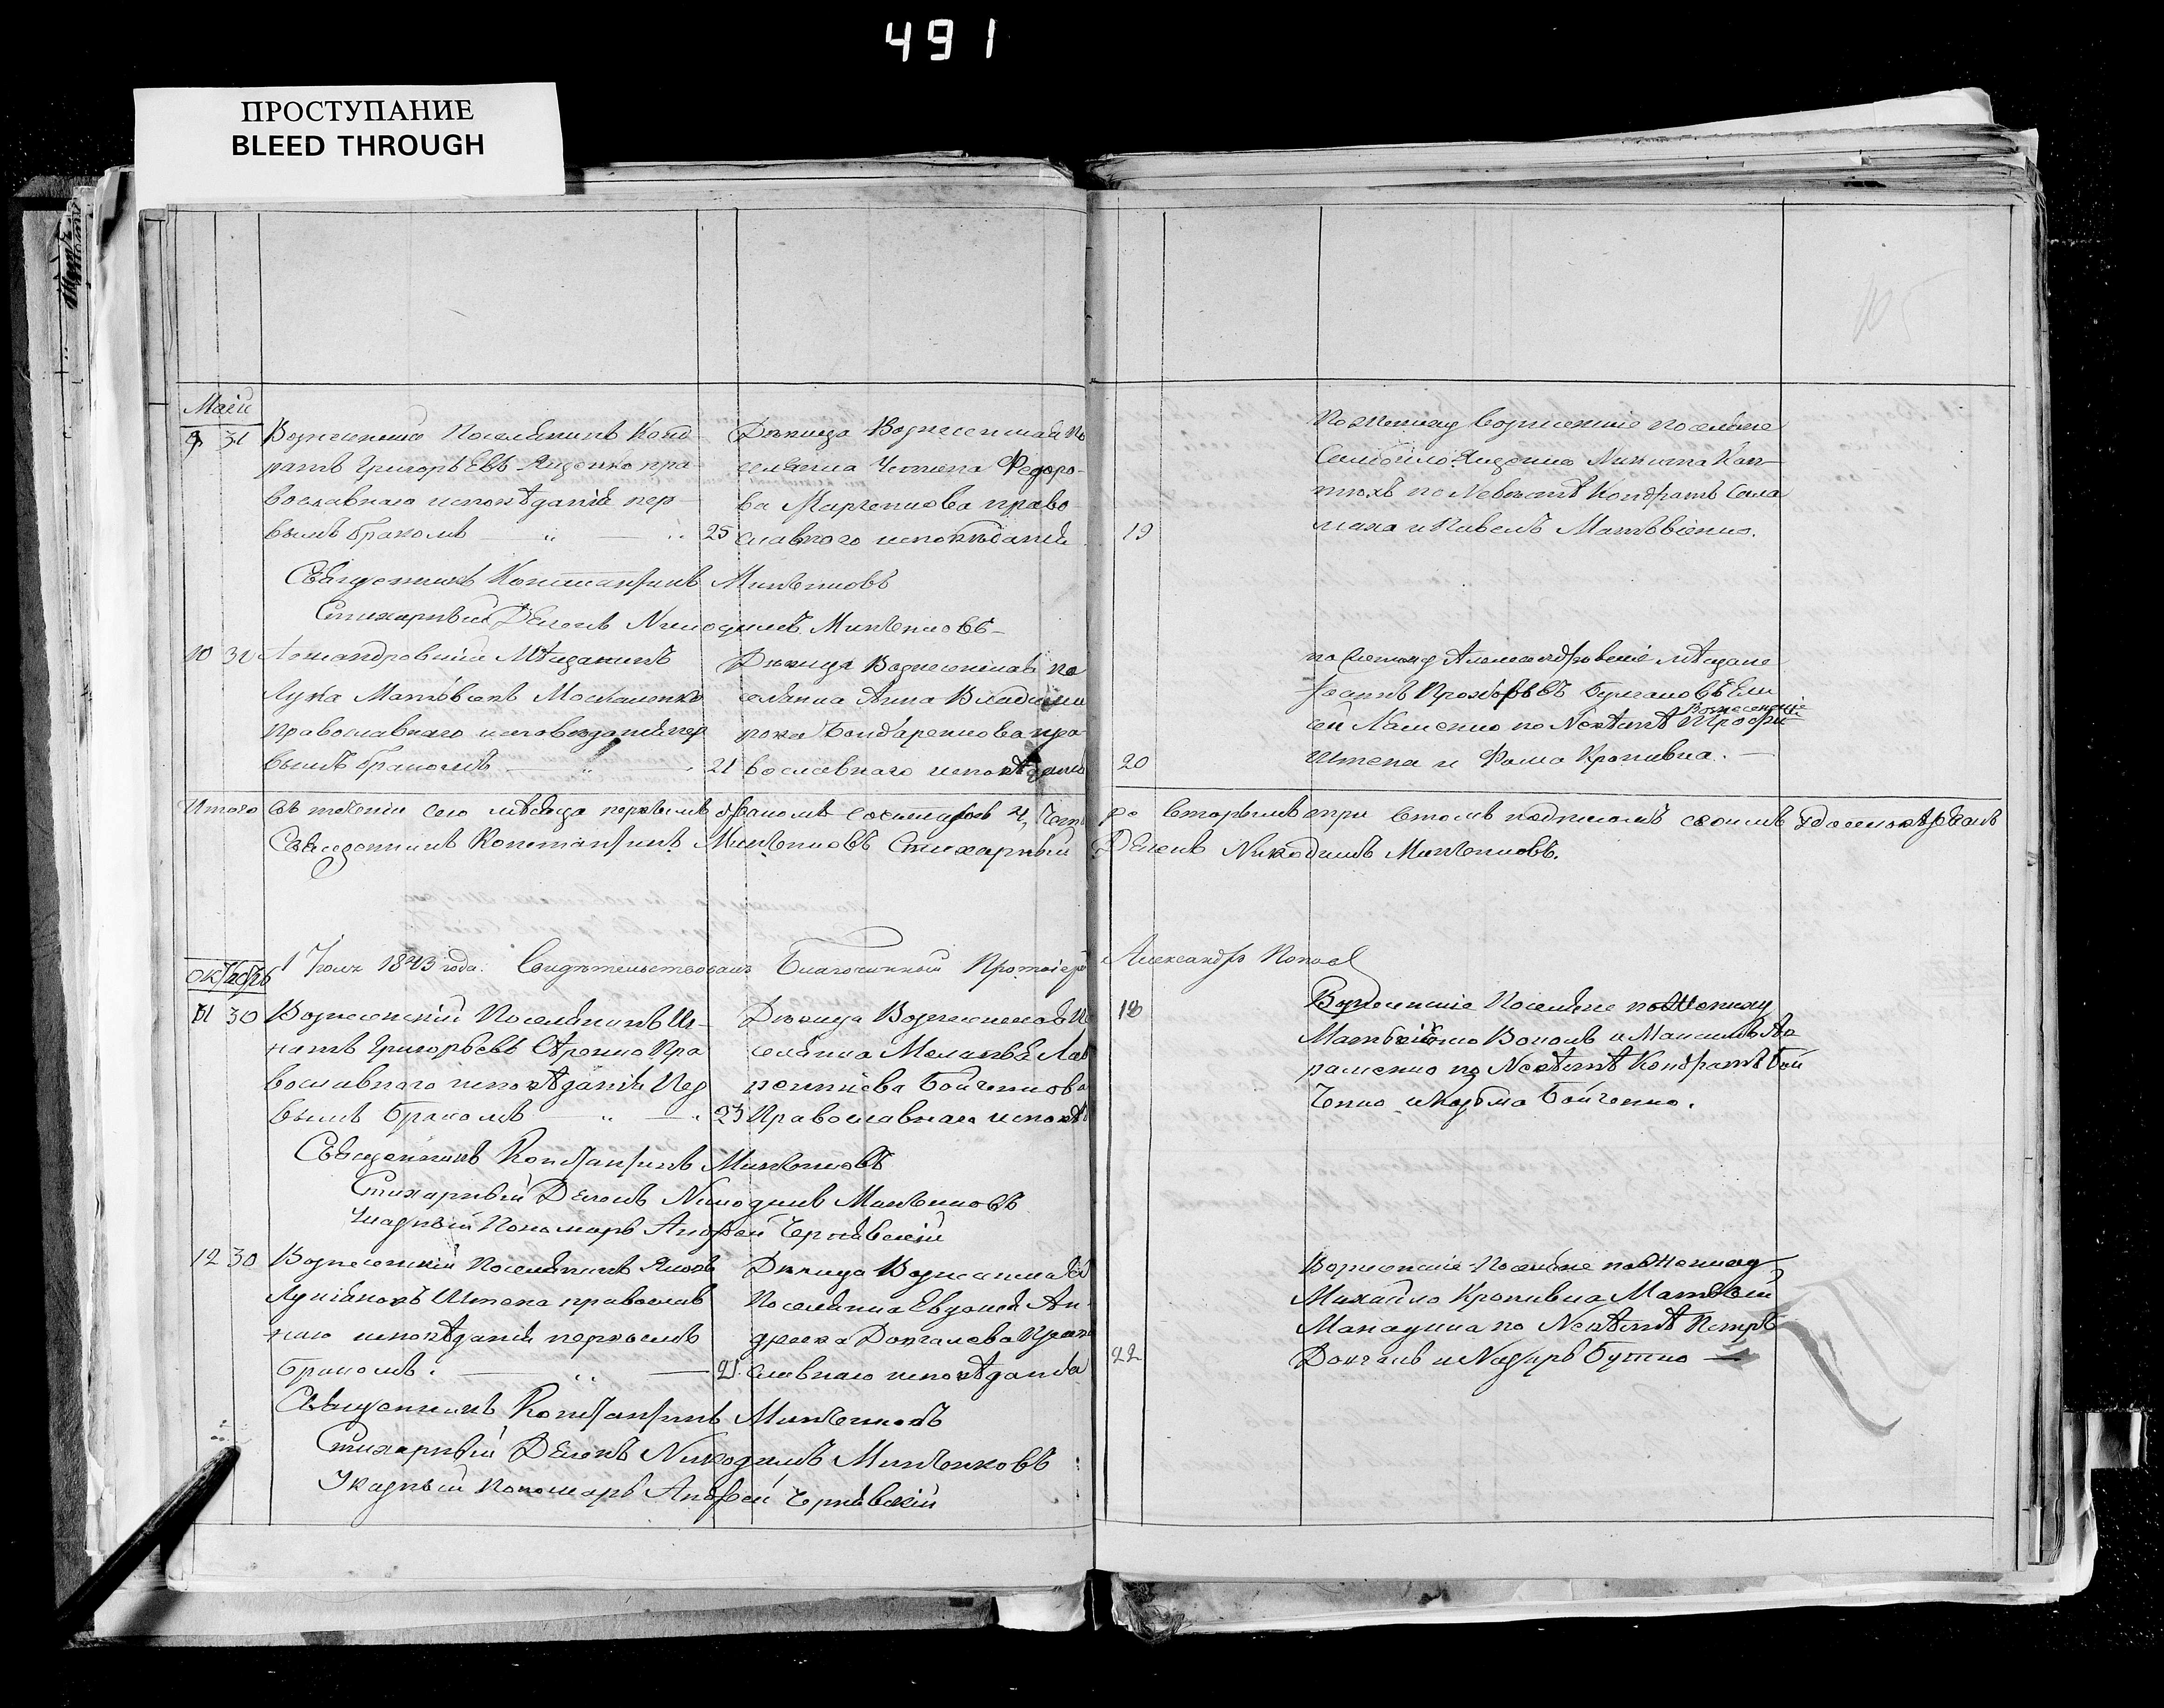 491
ПРОСТУПАНИЕ
BLEED THROUGH
105
Маiи
9 31 Вознесенскiй Поселянинъ Конд-
ратъ Григорьевъ Яценко пра-
вославнаго исповѣданiя пер-
вымъ бракомъ — " — " 25
Дѣвица Вознесенская По
селянка Федоро-
ва Марченкова право-
славного исповѣданiя
19
По женихѣ вознесенскiе поселяне
Самойло Яценко Никита
по Невѣстѣ Кондратъ Сала
маха и Павелъ Матвѣенко.
Священникъ Константинъ Минѣенковъ
Стихарный Дьячокъ Никодимъ Минѣенковъ
10 31 Александровскiй Мѣщанинъ
Лука Матвѣевъ Москаленко
православнаго исповѣданiя пер
вымъ бракомъ — " 21
Дѣвица Вознесенская по
селянка Анна Владими
рова Бондаренкова пра
вославнаго исповѣданiя
20
по женихѣ Александровскiе мѣщане
Iоаннъ Прохоровъ Булгаковъ Ели
сей по Невѣстѣ Вознесенскiе Трофи
Штепа и Фома Кропивка.
Итого въ теченiи сего мѣсяца первымъ бракомъ сочеталось 4, Чет
ро вторымъ три въ томъ подписомъ своимъ удостовѣряемъ
Священникъ Константинъ Минѣенковъ Стихарный
Дьячокъ Никодимъ Минѣенковъ.
1 Iюля 1843 года. Свидѣтельствовалъ Благочинный Протоiерей
Александръ Попов
Октябрь
11 30 Вознесенскiй Поселянинъ Иг-
натъ Григорьевъ Сѣренко Пра
вославнаго исповѣданiя Пер
вымъ бракомъ — " — " 23
Дѣвица Вознесенская По
селянка Меланiя Лав
рентiева Бойченкова
Православнаго исповѣ
18
Вознесенскiе Поселяне по Женихѣ
Матвѣй Воловъ и Максимъ Ав
раменко по Невѣстѣ Кондратъ Бой
ченко и Кузьма Бойченко.
Священникъ Константинъ Минѣенковъ
Стихарный Дьячокъ Никодимъ Минѣенковъ
Указный Пономарь Андрей Чернявскiй
12 30 Вознесенскiй Поселянинъ Яковъ
Лукiановъ Штепа православ
наго исповѣданiя первымъ
бракомъ. — " — 21.
Дѣвица Вознесенская
Поселянка Евдокiя Ан-
дреева Довгалева Право
славнаго исповѣданiя
22
Вознесенскiе Поселяне по Женихѣ
Михайло Кропивка Матвѣй
по Невѣстѣ Петръ
Довгаль и Бутко —
Священникъ Константинъ Минѣенковъ
Стихарный Дьячокъ Никодимъ Минѣенковъ
Указный Пономарь Андрей Чернявскiй